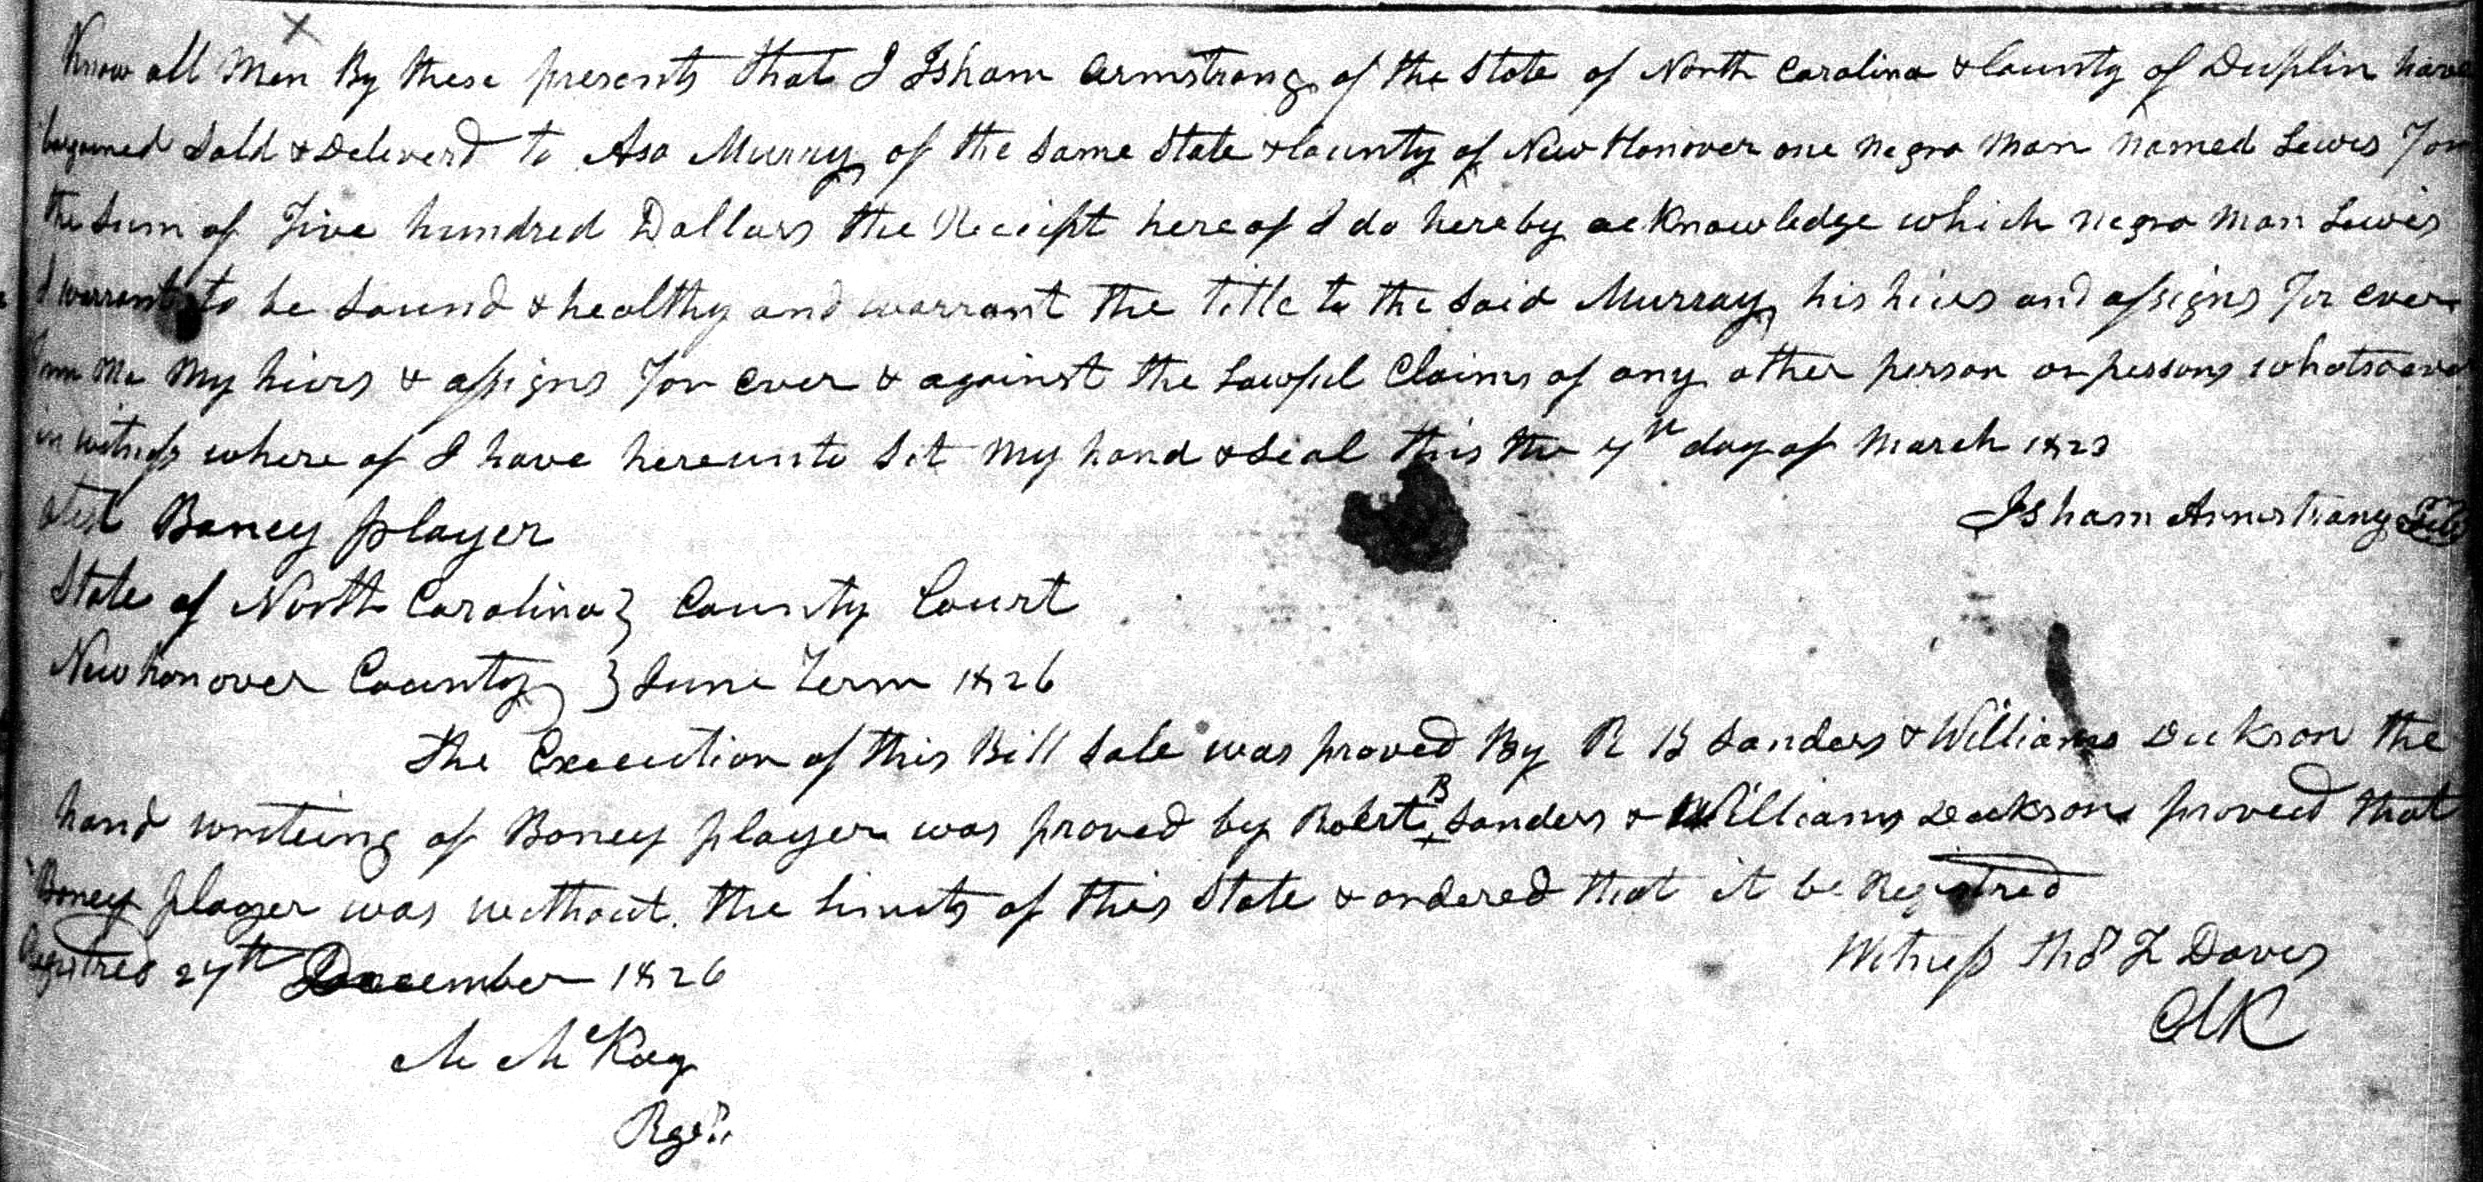 Know all Men By these presents that I Isham Armstrong of the State of North Carolina & County of Duplin have
bargained Sold & Deliverd to Asa Murray of the Same State & County of New Hanover one negro Man named Lewis For
the Sum of Five hundred Dollars the Receipt here of I do hereby acknowledge which negro man Lewis
I warrant to be Sound & healthy and warrant the title to the Said Murray his hiers and assigns For ever
From Me My hiers & assigns For ever & against the Lawful Claims of any other person or persons whatsoever
in witness where of I have hereunto Set My hand & Seal this the 7th day of March 1823
Test Boney player
Isham Armstrong Seal
State of North Carolina } County Court
New hanover County } June Term 1826
The Execution of this Bill Sale was proved By R B Sanders & Williams Dickson the
hand writeing of Boney player was proved by Robert B Sanders & Williams Dickson proved that
Boney player was without the limits of this State & ordered that it be Registred
Witness Thos F Davis
Clk
Registred 27th December 1826
M McKay
Regr